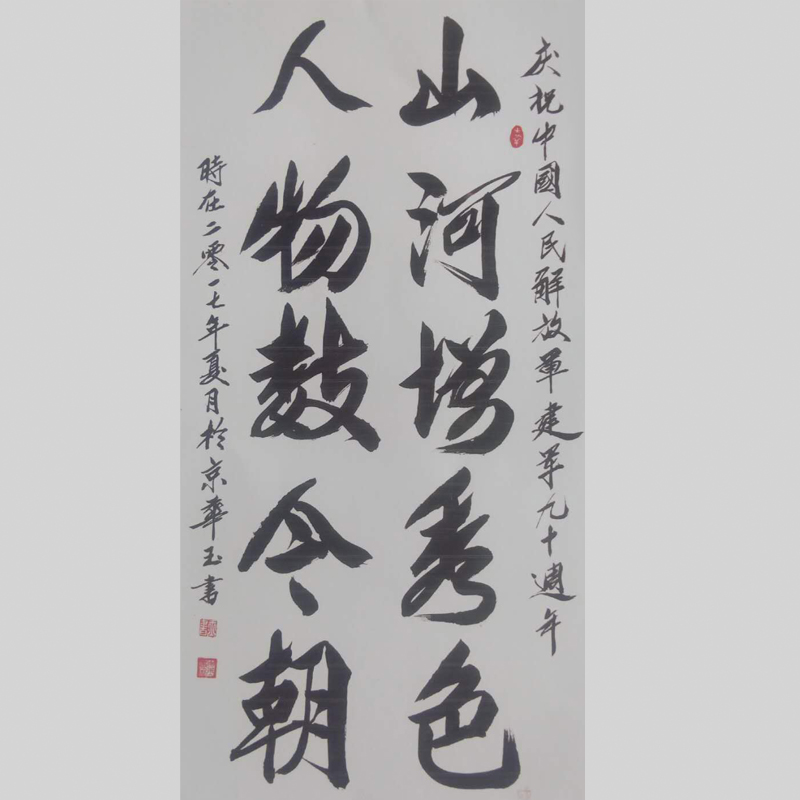 庆祝中國人民解放軍建军九十週年
山河增秀色
人物數今朝
時在二零一七年夏月於京華玉书